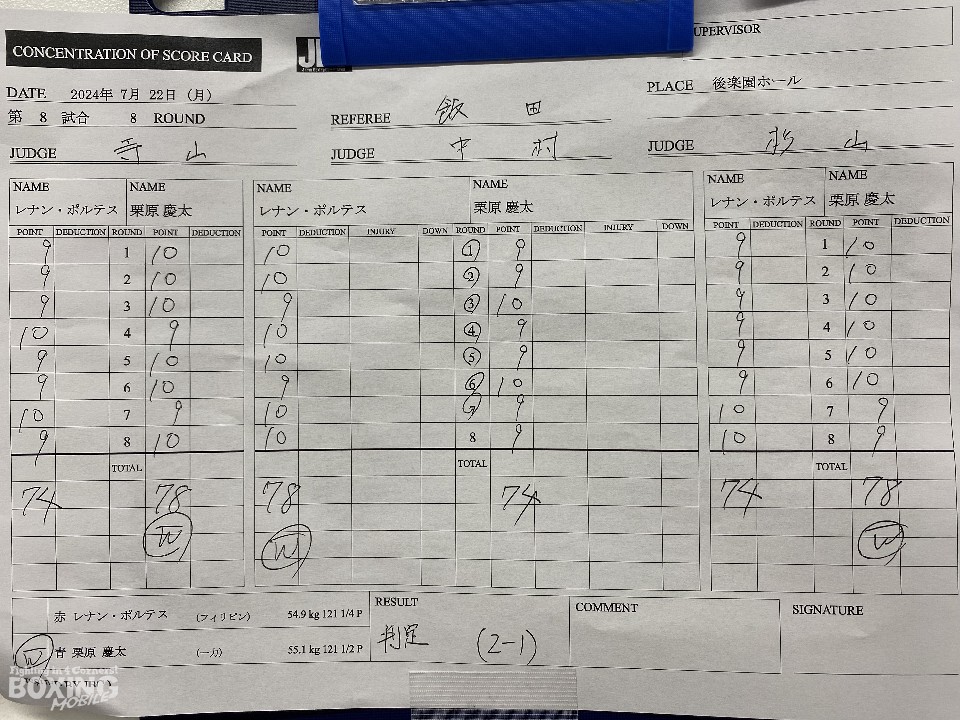 CONCENTRATION OF SCORE CARD
SUPERVISOR
DATE 2024年 7月 22日 (月)
PLACE 後楽園ホール
第 8 試合 8 ROUND
REFEREE 飯田
JUDGE 寺山
JUDGE 中村
JUDGE 杉山
NAME NAME NAME NAME NAME NAME
レナン・ポルテス 栗原 慶太 レナン・ポルテス 栗原 慶太 レナン・ポルテス 栗原 慶太
POINT DEDUCTION ROUND POINT DEDUCTION POINT DEDUCTION INJURY DOWN ROUND POINT DEDUCTION INJURY DOWN POINT DEDUCTION ROUND POINT DEDUCTION
9 1 10 10 1 9 9 1 10
9 2 10 10 2 9 9 2 10
9 3 10 9 3 10 9 3 10
10 4 9 10 4 9 9 4 10
9 5 10 10 5 9 9 5 10
9 6 10 9 6 10 9 6 10
10 7 9 10 7 9 10 7 9
9 8 10 10 8 9 10 8 9
TOTAL TOTAL TOTAL
74 78 78 74 74 78
W W W
赤 レナン・ポルテス (フィリピン) 54.9 kg 121 1/4 P
W 青 栗原 慶太 (一力) 55.1 kg 121 1/2 P
RESULT
判定 (2-1)
COMMENT
SIGNATURE
Fighting in 4 Corners!
BOXING
MOBILE